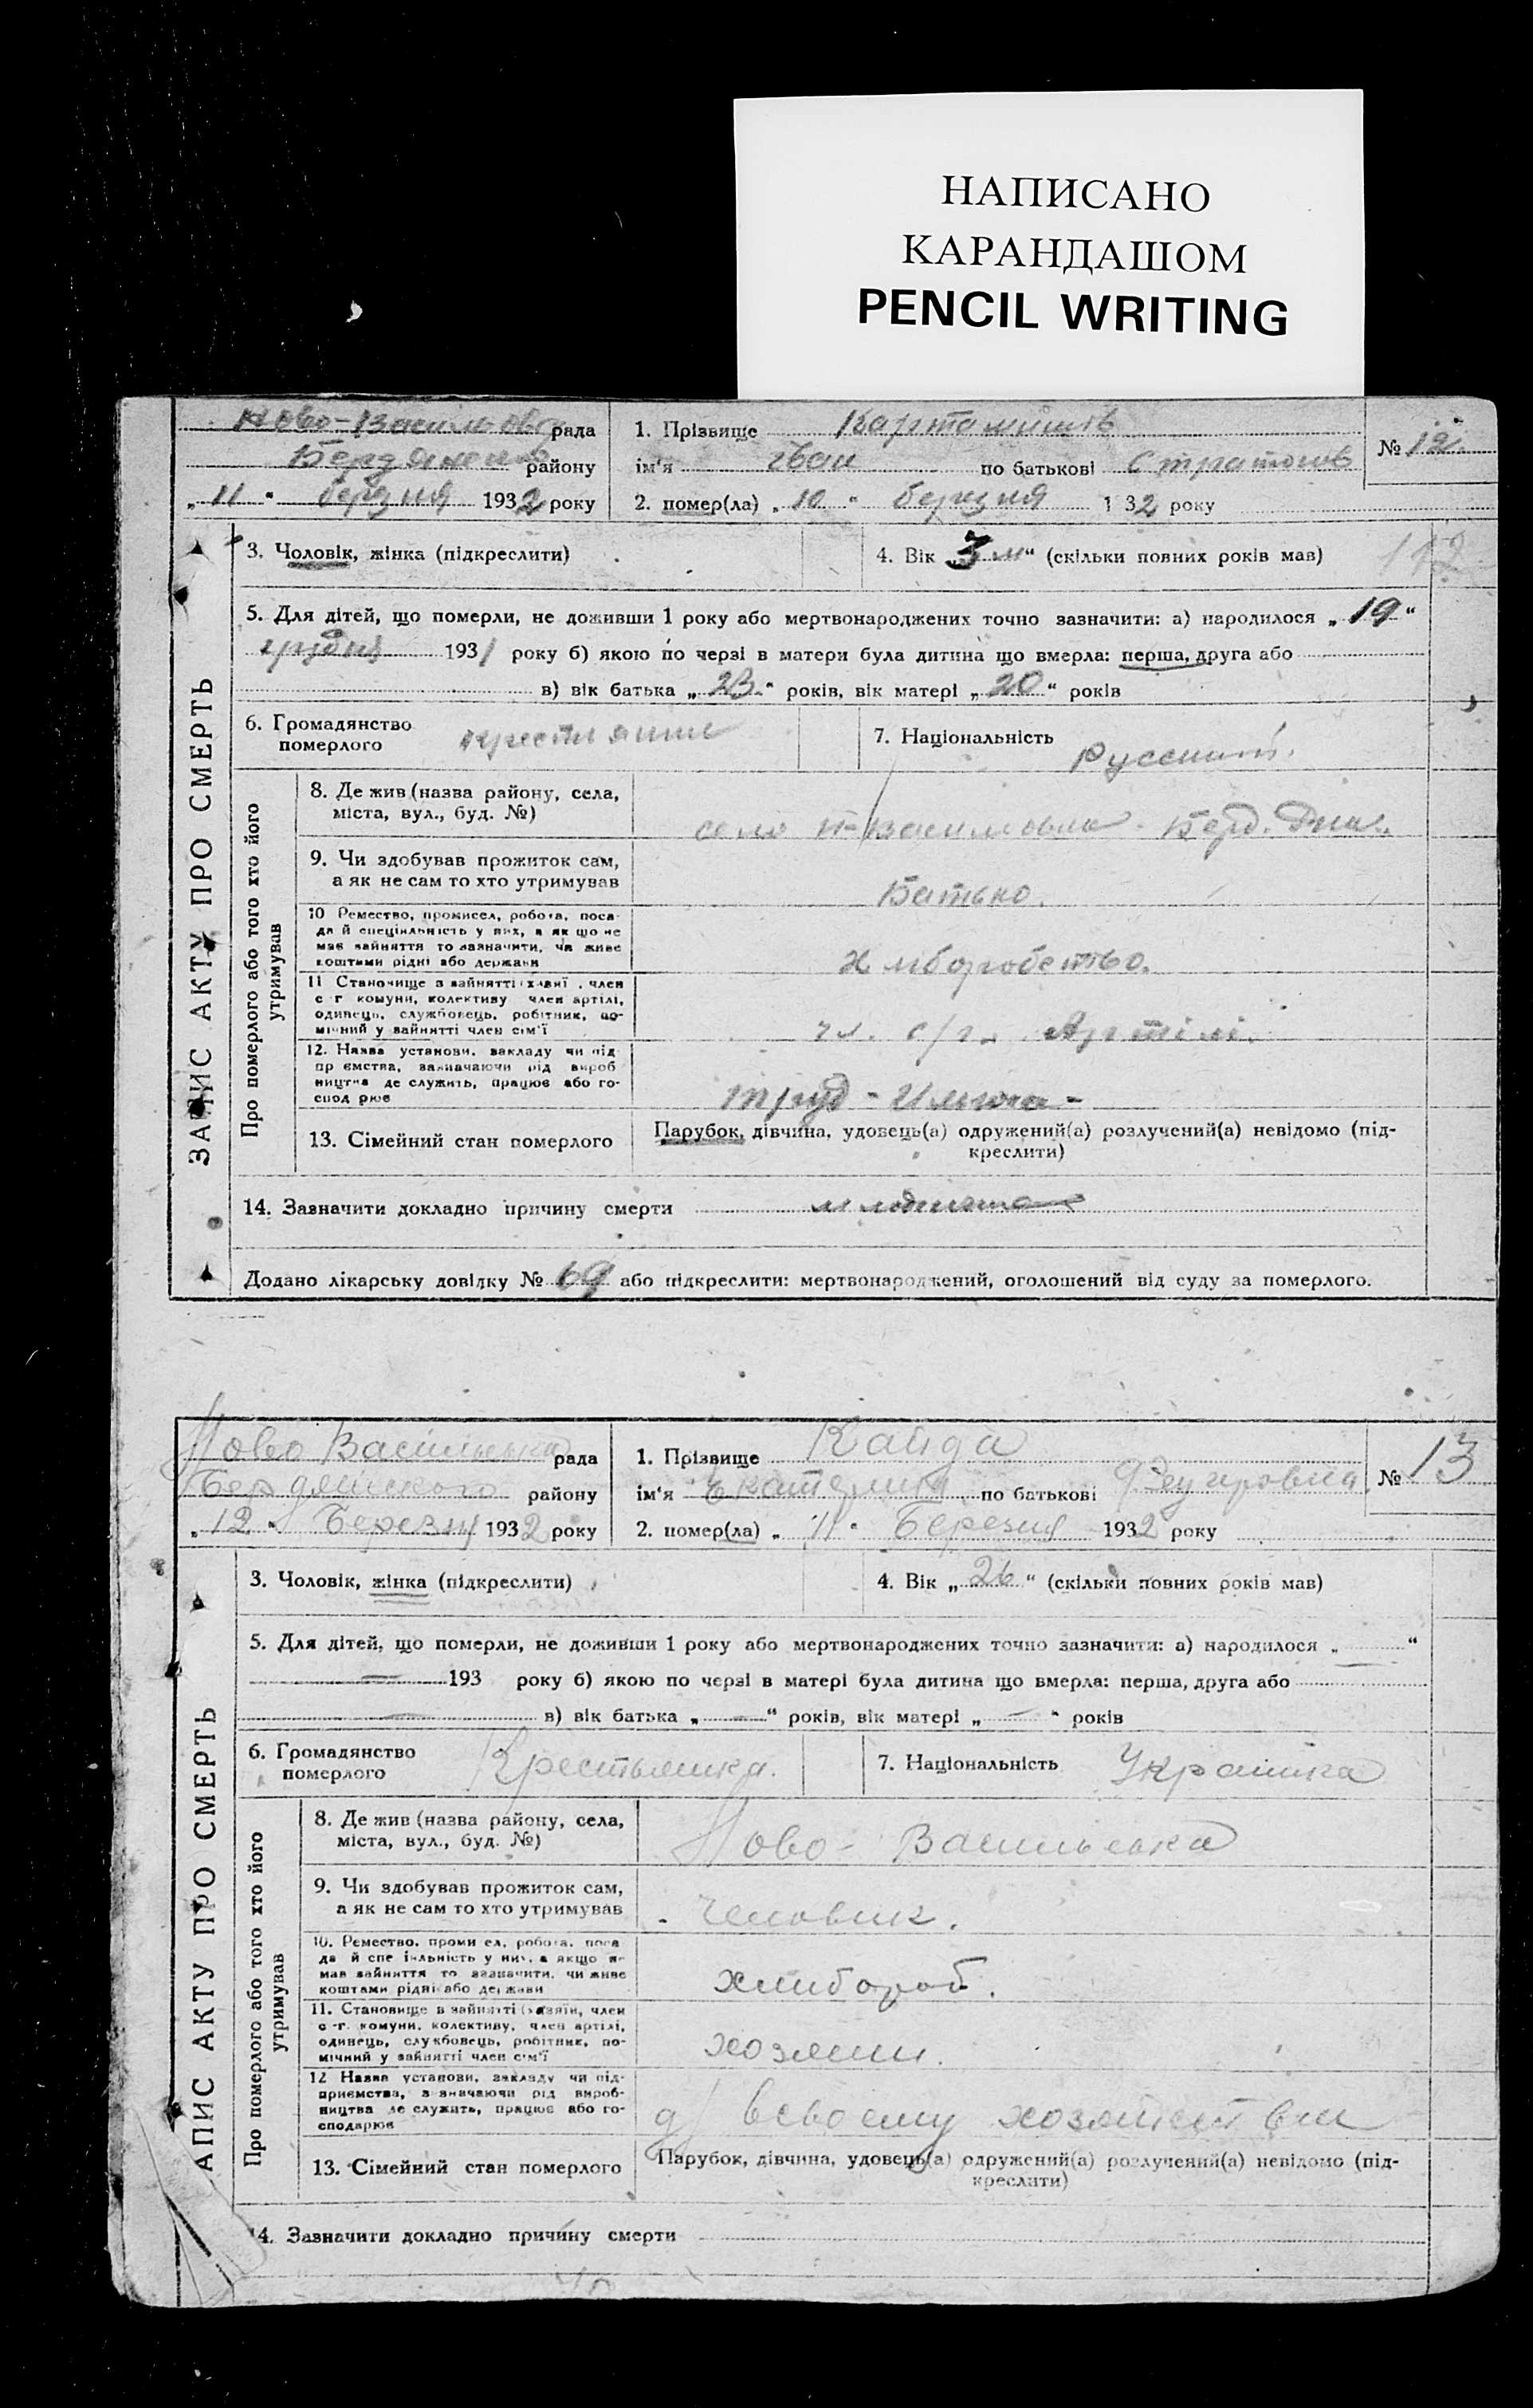 НАПИСАНО
КАРАНДАШОМ
PENCIL WRITING
Ново-Васильовс рада
Бердянсько району
„ 11 " березня 1932 року
1. Прізвище
№ 12.
ім'я Іван по батькові Стратонов
2. помер(ла) „ 10 " березня 1 32 року
ЗАПИС АКТУ ПРО СМЕРТЬ
3. Чоловік, жінка (підкреслити)
4. Вік „ 3 м " (скільки повних років мав)
112
5. Для дітей, що померли, не доживши 1 року або мертвонароджених точно зазначити: а) народилося „ 19 "
грудня 1931 року б) якою по черзі в матери була дитина що вмерла: перша, друга або
в) вік батька „ 23 " років, вік матері „ 20 " років
6. Громадянство
померлого
крестянин
7. Національність
Русский.
Про померлого або того хто його
утримував
8. Де жив (назва району, села,
міста, вул., буд. №)
село Н-Васильовка Берд.
9. Чи здобував прожиток сам,
а як не сам то хто утримував
Батько.
10 Ремество, промисел, робота, поса-
да й спеціяльність у них, а як що не
має зайняття то зазначити, чи живе
коштами рідні або держави
Хліборобство.
11 Становище в зайнятті член
с-г комуни, колективу член артілі,
одинець, службовець, робітник, по-
мічний у зайнятті член сім'ї
чл. с/г. Артілі.
12. Назва установи, закладу чи під
пр ємства, зазначаючи рід вироб
ництва де служить, працює або го-
спод рює
труд - Ильича -
13. Сімейний стан померлого
Парубок, дівчина, удовець(а) одружений(а) розлучений(а) невідомо (під-
креслити)
14. Зазначити докладно причину смерти
Додано лікарську довідку № 69 або підкреслити: мертвонароджений, оголошений від суду за померлого.
Ново Васильевка рада
Бердянского району
„ 12 " Березня 1932 року
1. Прізвище Кайда
№ 13
ім'я Екатерина по батькові
2. помер(ла) „ 11 " Березня 1932 року
АПИС АКТУ ПРО СМЕРТЬ
3. Чоловік, жінка (підкреслити)
4. Вік „ 26 " (скільки повних років мав)
5. Для дітей, що померли, не доживши 1 року або мертвонароджених точно зазначити: а) народилося „ "
193 року б) якою по черзі в матері була дитина що вмерла: перша, друга або
в) вік батька „ — " років, вік матері „ — " років
6. Громадянство
померлого
Крестьянка.
7. Національність
Украинка
Про померлого або того хто його
утримував
8. Де жив (назва району, села,
міста, вул., буд. №)
Ново-Васильевка
9. Чи здобував прожиток сам,
а як не сам то хто утримував
Человик.
10. Ремество, проми ел, робота, поса
да й спе іяльність у них, а якщо н-
має зайняття то зазначити, чи живе
коштами рідні або держави
хлибороб.
11. Становище в зайнятті (хазяїн, член
с-г. комуни, колективу, член артілі,
одинець, службовець, робітник, по-
мічний у зайнятті член сім'ї
хозяин.
12 Назва установи, закладу чи під-
приємства, зазначаючи рід вироб-
ництва де служить, працює або го-
сподарює
в своему хозяйстви
13. Сімейний стан померлого
Парубок, дівчина, удовець(а) одружений(а) розлучений(а) невідомо (під-
креслити)
14. Зазначити докладно причину смерти